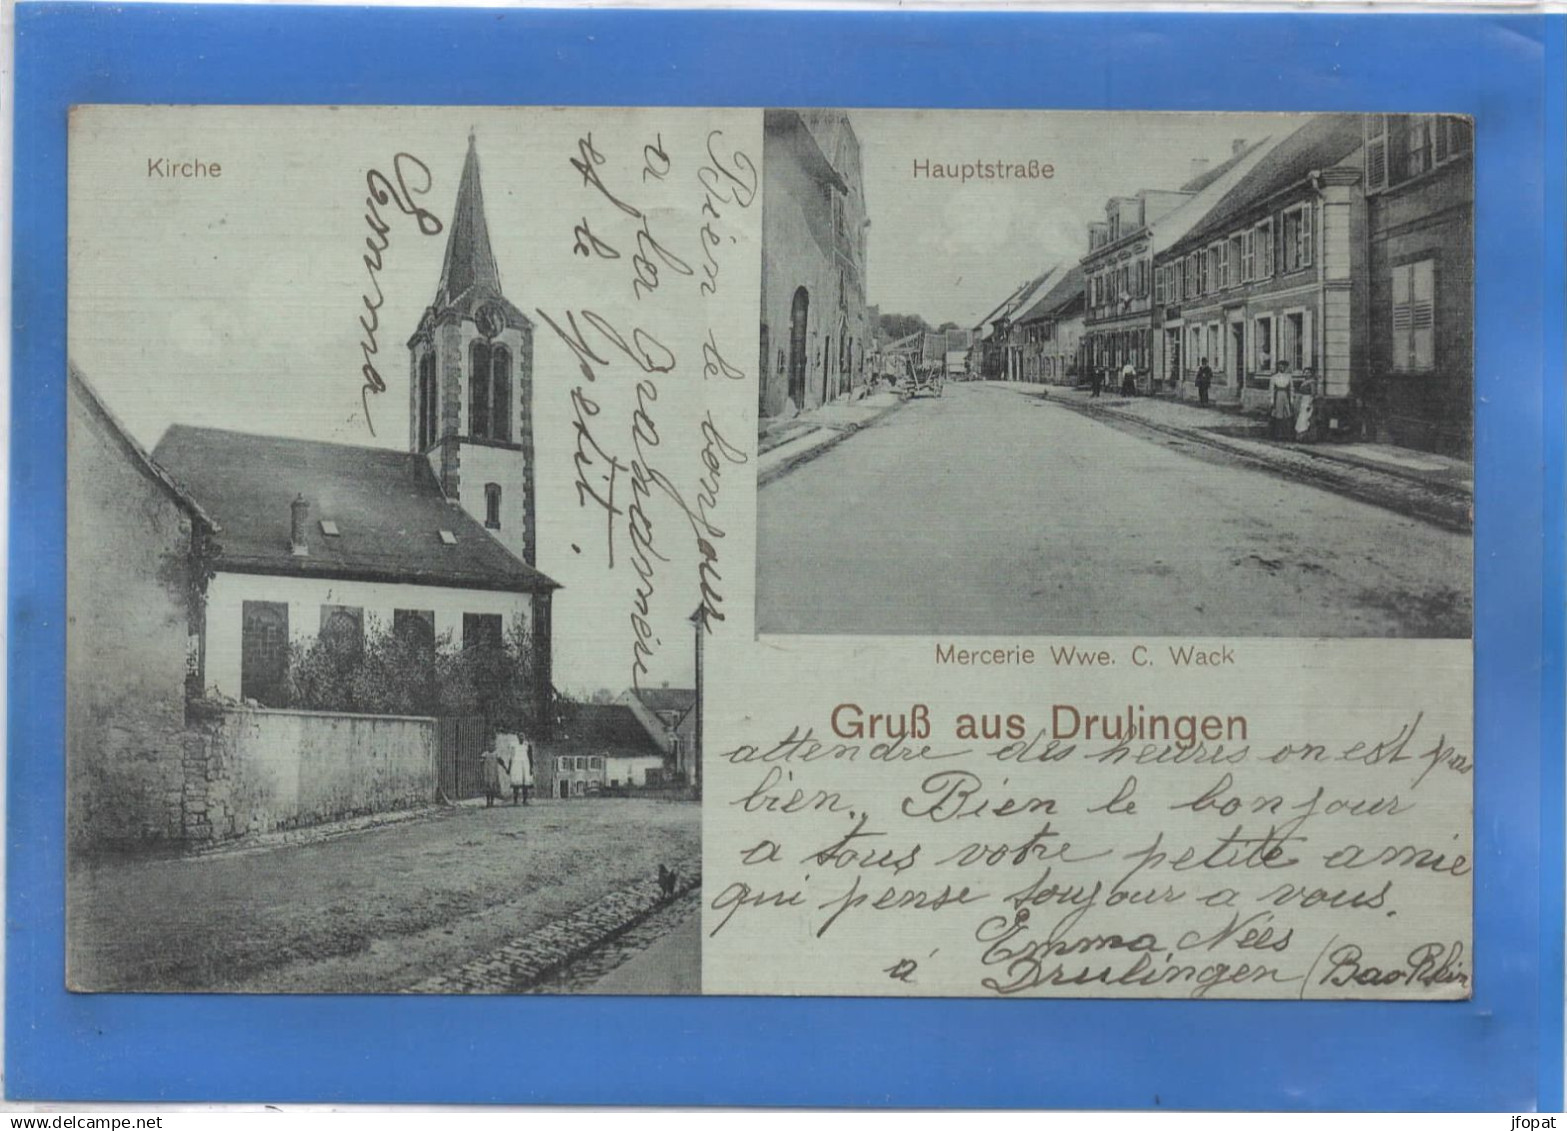 Kirche
Hauptstraße
Mercerie Wwe. C. Wack
Gruß aus Drulingen
attendre des heures on est pas
bien. Bien le bonjour
a tous votre petite amie
qui pense toujour a vous.
Emma Nées
à Drulingen (Bas Rhin
Bien le bonjour
a la Grahdmère
et le
Emma
jfopat